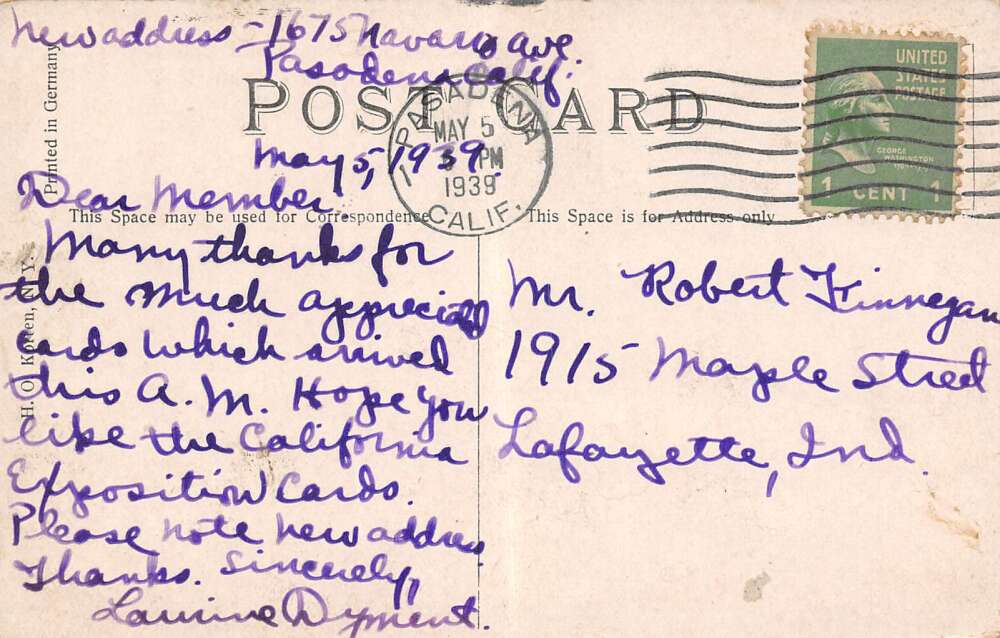 New address - 1675 Navarro Ave
Pasadena Calif.
UNITED
STATES
POSTAGE
GEORGE
WASHINGTON
1 CENT 1
POST CARD
PASADENA
MAY 5
PM
1939
CALIF.
Printed in Germany
H. O. Korten, N. Y.
May 5, 1939.
Dear Member
This Space may be used for Correspondence
This Space is for Address only
Many thanks for
the much appreciated
cards which arrived
this A.M. Hope you
like the California
Exposition Cards.
Please note new address
Thanks. Sincerely,
Dyment.
Mr. Robert Finnegan
1915 Maple Street
Lafayette, Ind.